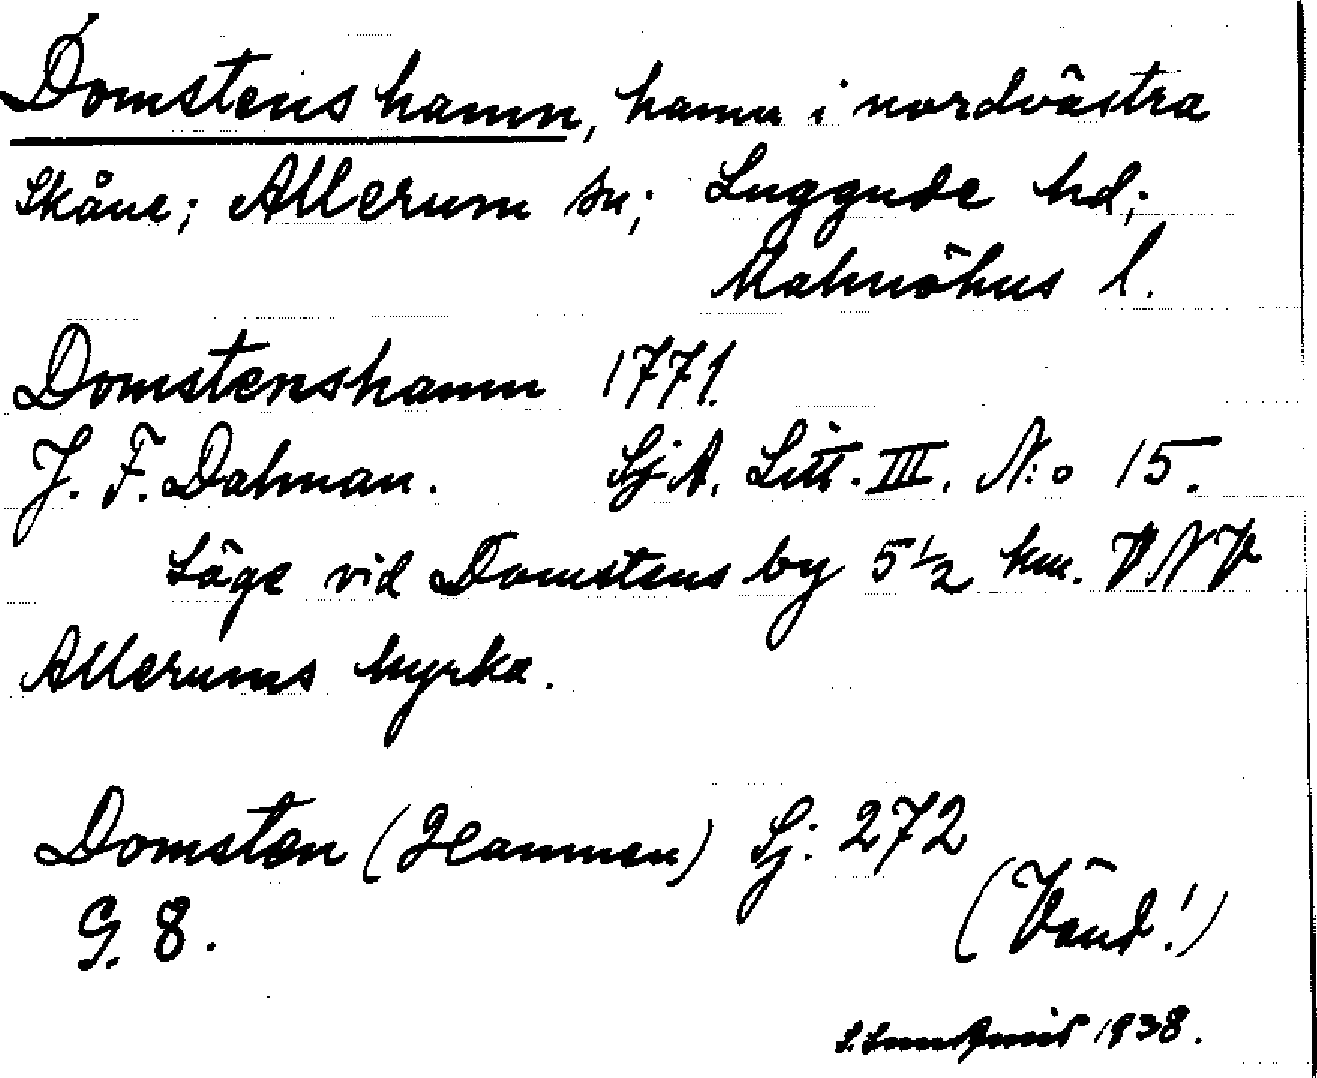 Domstens hamn, hamn i nordvästra
Skåne; Allerum sn; Luggude hd;
Malmöhus l.
Domstenshamn 1771.
J. F. Dalman. SjA. Litt. III. N:o 15.
Läge vid Domstens by 5 1/2 km. VNV
Allerums kyrka.
Domsten (Hamnen) Sj: 272
G. 8.
(Vänd!)
1938.